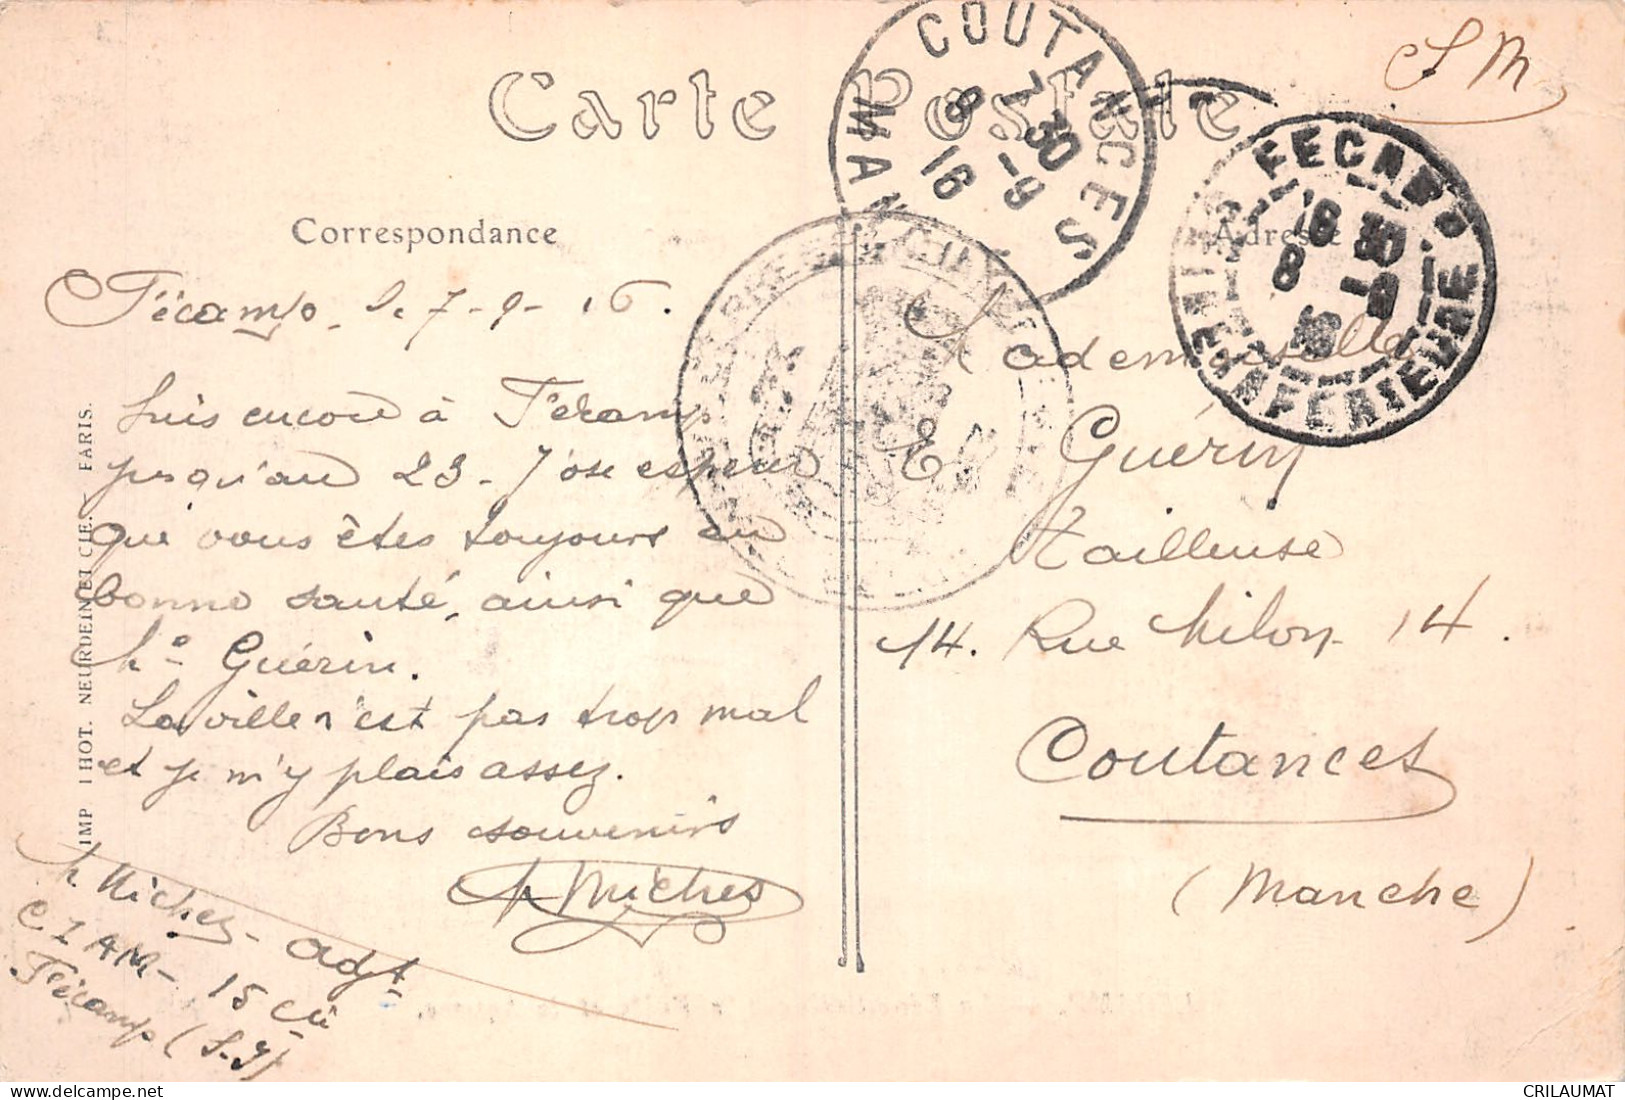 Carte Postale
S M
Correspondance
Adresse
COUTANCES
MANCHE
7 30
8 - 9
16
FECAMP
16 30
8 - 9
16
SEINE INFERIEURE
Fécamp le 7-9-16.
Suis encore à Fécamp
jusqu'au 23 - J'ose esperer
que vous êtes toujours en
bonne santé, ainsi que
Me Guérin.
La ville n'est pas trop mal
et je m'y plais assez.
Bons souvenirs
M Michez
M Michez - adjt
CIAM - 15 Cie
Fécamp (S-I)
Mademoiselle
E. Guérin
tailleuse
14. Rue Milon 14.
Coutances
(Manche)
IMP PHOT. NEURDEIN ET CIE. PARIS.
CRILAUMAT